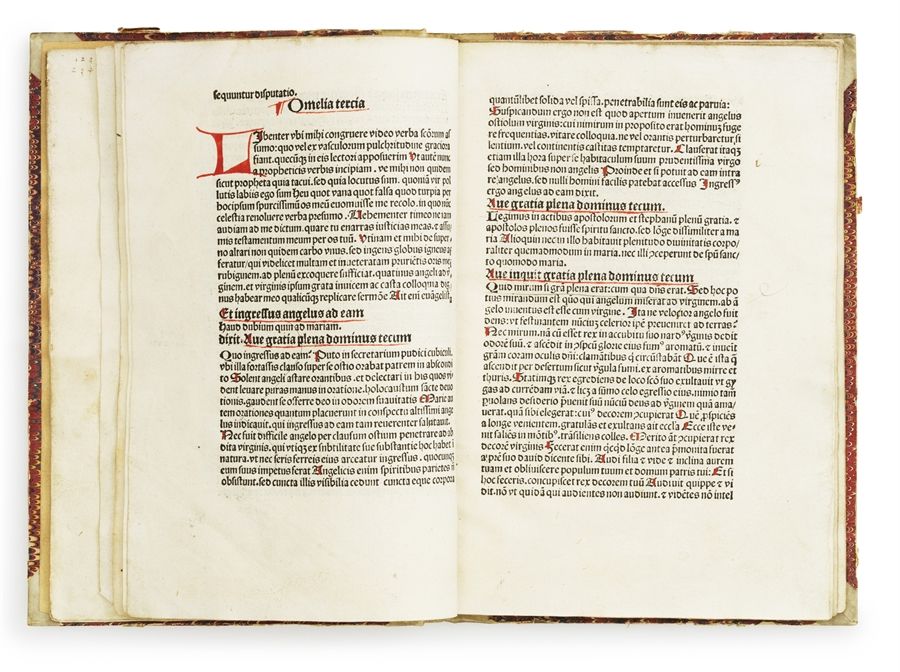 sequuntur disputatio.
Omelia tercia
Libenter vbi mihi congruere video verba scōrum
sumo: quo vel ex vasculorum pulchritudine graciora
fiant. quecūqȝ in eis lectori apposuerim Vt autē nunc
a propheticis verbis incipiam. ve mihi non quidem
sicut propheta quia tacui. sed quia locutus sum. quoniā vir pol
lutis labijs ego sum Heu quot vana quot falsa quot turpia per
hoc ipsum spurcissimū os meū euomuisse me recolo. in quo nūc
celestia reuoluere verba presumo. Vehementer timeo ne iam
audiam ad me dictum. quare tu enarras iusticias meas. et assu
mis testamentum meum per os tuū. Vtinam et mihi de super
no altari non quidem carbo vnus. sed ingens globus igneus af
feratur. qui videlicet multam et inueteratam prurietis oris mei
rubiginem. ad plenū excoquere sufficiat. quatinus angeli ad v̄gi
nem. et virginis ipsum grata inuicem ac casta colloquia dig
nus habear meo qualicūqȝ replicare sermōe Ait eni euāgelista
Et ingressus angelus ad eam
haud dubium quin ad mariam.
dixit. Aue gratia plena dominus tecum
Quo ingressus ad eam? Puto in secretarium pudici cubiculi.
vbi illa fortassis clauso super se ostio orabat patrem in abscondi
to Solent angeli astare orantibus. et delectari in his quos vi
dent leuare puras manus in oratione. holocaustum sācte deuo
tionis. gaudent se offerre deo in odorem suauitatis Marie au
tem orationes quantum placuerunt in conspectu altissimi ange
lus indicauit. qui ingressus ad eam tam reuerenter salutauit.
Nec fuit difficile angelo per clausum ostium penetrare ad ab
dita virginis. qui vtiqȝ ex subtilitate sue substantie hoc habet in
natura. vt nec ferreis eius arceatur ingressus. quocunqȝ
eum suus impetus ferat Angelicis enim spiritibus parietes nō
obsistunt. sed cuncta illis visibilia cedunt cuncta eque corpora
quantūlibet solida vel spissa. penetrabilia sunt eis ac peruia:
Suspicandum ergo non est quod apertum inuenerit angelus
ostiolum virginis: cui nimirum in proposito erat hominū fuge
re frequentias. vitare colloquia. ne vel orantis perturbaretur si
lentium. vel continentis castitas temptaretur. Clauserat itaqȝ
etiam illa hora super se habitaculum suum prudentissima virgo
sed hominibus non angelis Proinde et si potuit ad eam intra
re angelus. sed nulli homini facilis patebat accessus Ingressꝰ
ergo angelus ad eam dixit.
Aue gratia plena dominus tecum.
Legimus in actibus apostolorum et stephanū plenū gratia. et
apostolos plenos fuisse spiritu sancto. sed lōge dissimiliter a ma
ria Alioquin nec in illo habitauit plenitudo diuinitatis corpo
raliter quemadmodum in maria. nec illi ꝯceperunt de spū sanc
to quomodo maria.
Aue inquit gratia plena dominus tecum
Quid mirum si grā plena erat: cum qua dn̄s erat. Sed hoc po
tius mirandum est quō qui angelum miserat ad virginem. ab ā
gelo inuentus est esse cum virgine. Ita ne velocior angelo fuit
deus: vt festinantem nūcium celerior ipē preueniret ad terras?
Nec mirum. nā cū esset rex in accubitu suo nardꝰ v̄ginis dedit
odorē suū. et ascēdit in ꝯspcū glorie eius fumꝰ aromatū. et inueīt
grām coram oculis dn̄i: clamātibus q̄ circūstabāt Que ē ista q̄
ascendit per desertum sicut v̄gula fumi. ex aromatibus mirre et
thuris. Statimqȝ rex egrediens de loco scō suo exultauit vt gy
gas ad currēdam viā. et licȝ a sūmo celo egressio eius. nimio tam
ꝑuolans desiderio preuenit suū nūciū deus ad v̄ginem quā ama
uerat. quā sibi elegerat: cuiꝰ decorem ꝯcupierat Quē ꝓspiciēs
a longe venientem. gratulās et exultans ait ecclīa Ecce iste ve
nit saliēs in mōtibꝰ. trāsiliens colles. Merito āt ꝯcupierat rex
decorē virginis Fecerat enim qicqd lōge antea pmonita fuerat
a pīe suo dauid dicente sibi. Audi filia et vide et inclina aurem
tuam et obliuiscere populum tuum et domum patris tui: Et si
hoc feceris. concupiscet rex decorem tuū Audiuit quippe et vi
dit. nō vt quidā qui audientes non audiunt. et vidētes nō intel